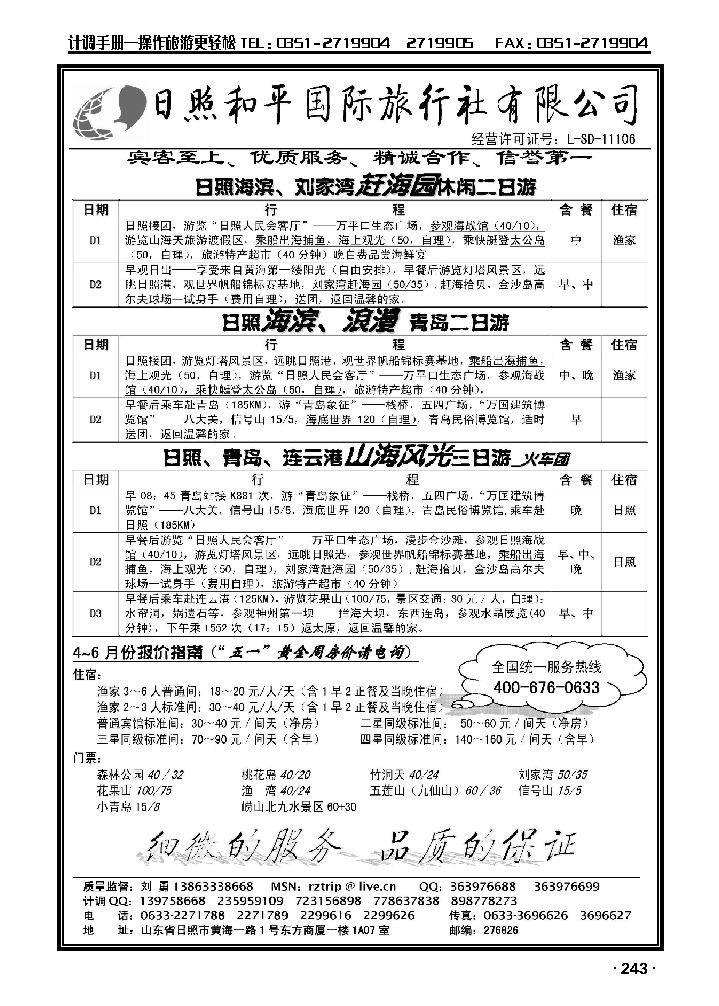 计调手册—操作旅游更轻松 TEL：0351-2719904 2719905 FAX：0351-2719904
日照和平国际旅行社有限公司
经营许可证号：L-SD-11106
宾客至上、优质服务、精诚合作、信誉第一
日照海滨、刘家湾赶海园休闲二日游
日期 行 程 含 餐 住宿
日照接团，游览“日照人民会客厅”——万平口生态广场，参观海战馆（40/10），
D1 游览山海天旅游渡假区，乘船出海捕鱼，海上观光（50，自理），乘快艇登太公岛 中 渔家
（50，自理），旅游特产超市（40 分钟）晚自费品尝海鲜宴
早观日出——享受来自黄海第一缕阳光（自由安排），早餐后游览灯塔风景区，远
D2 眺日照港，观世界帆船锦标赛基地，刘家湾赶海园（50/35），赶海拾贝，金沙岛高 早、中
尔夫球场一试身手（费用自理），送团，返回温馨的家。
日照海滨、浪漫 青岛二日游
日期 行 程 含 餐 住宿
日照接团，游览灯塔风景区，远眺日照港，观世界帆船锦标赛基地，乘船出海捕鱼，
D1 海上观光（50，自理），游览“日照人民会客厅”——万平口生态广场，参观海战 中、晚 渔家
馆（40/10），乘快艇登太公岛（50，自理），旅游特产超市（40 分钟），
早餐后乘车赴青岛（185KM），游“青岛象征”——栈桥，五四广场，“万国建筑博
D2 览馆”——八大关，信号山 15/5，海底世界 120（自理），青岛民俗博览馆，适时 早
送团，返回温馨的家。
日照、青岛、连云港山海风光三日游_火车团
日期 行 程 含 餐 住宿
早 08：45 青岛站接 K881 次，游“青岛象征”——栈桥，五四广场，“万国建筑博
D1 览馆”——八大关，信号山 15/5，海底世界 120（自理），青岛民俗博览馆，乘车赴 晚 日照
日照（185KM）
早餐后游览“日照人民会客厅”——万平口生态广场，漫步金沙滩，参观日照海战
D2 馆（40/10），游览灯塔风景区，远眺日照港，参观世界帆船锦标赛基地，乘船出海 早、中、晚 日照
捕鱼，海上观光（50，自理），刘家湾赶海园（50/35），赶海拾贝，金沙岛高尔夫
球场一试身手（费用自理），旅游特产超市（40 分钟）
早餐后乘车赴连云港（125KM），游览花果山（100/75，景区交通：30 元/人，自理）；
D3 水帘洞，娲遗石等，参观神州第一坝——拦海大坝，东西连岛，参观水晶展览(40 早、中
分钟)，下午乘 1552 次（17：15）返太原，返回温馨的家。
4~6 月份报价指南（“五一”黄金周房价请电询）
全国统一服务热线
400-676-0633
住宿：
渔家 3～6 人普通间：18～20 元/人/天（含 1 早 2 正餐及当晚住宿）
渔家 2～3 人标准间：30～40 元/人/天（含 1 早 2 正餐及当晚住宿）
普通宾馆标准间：30～40 元／间天（净房） 二星同级标准间： 50～60 元／间天（净房）
三星同级标准间：70～90 元／间天（含早） 四星同级标准间：140～160 元／间天（含早）
门票：
森林公园 40／32 桃花岛 40/20 竹洞天 40/24 刘家湾 50/35
花果山 100/75 渔 湾 40/24 五莲山（九仙山）60／36 信号山 15/5
小青岛 15/8 崂山北九水景区 60+30
细微的服务 品质的保证
质量监督：刘 勇 13863338668 MSN：rztrip @ live.cn QQ：363976688 363976699
计调 QQ：139758668 235959109 723156898 778637838 898778273
电 话：0633-2271788 2271789 2299616 2299626 传真：0633-3696626 3696627
地 址：山东省日照市黄海一路 1 号东方商厦一楼 1A07 室 邮编：276826
·243·